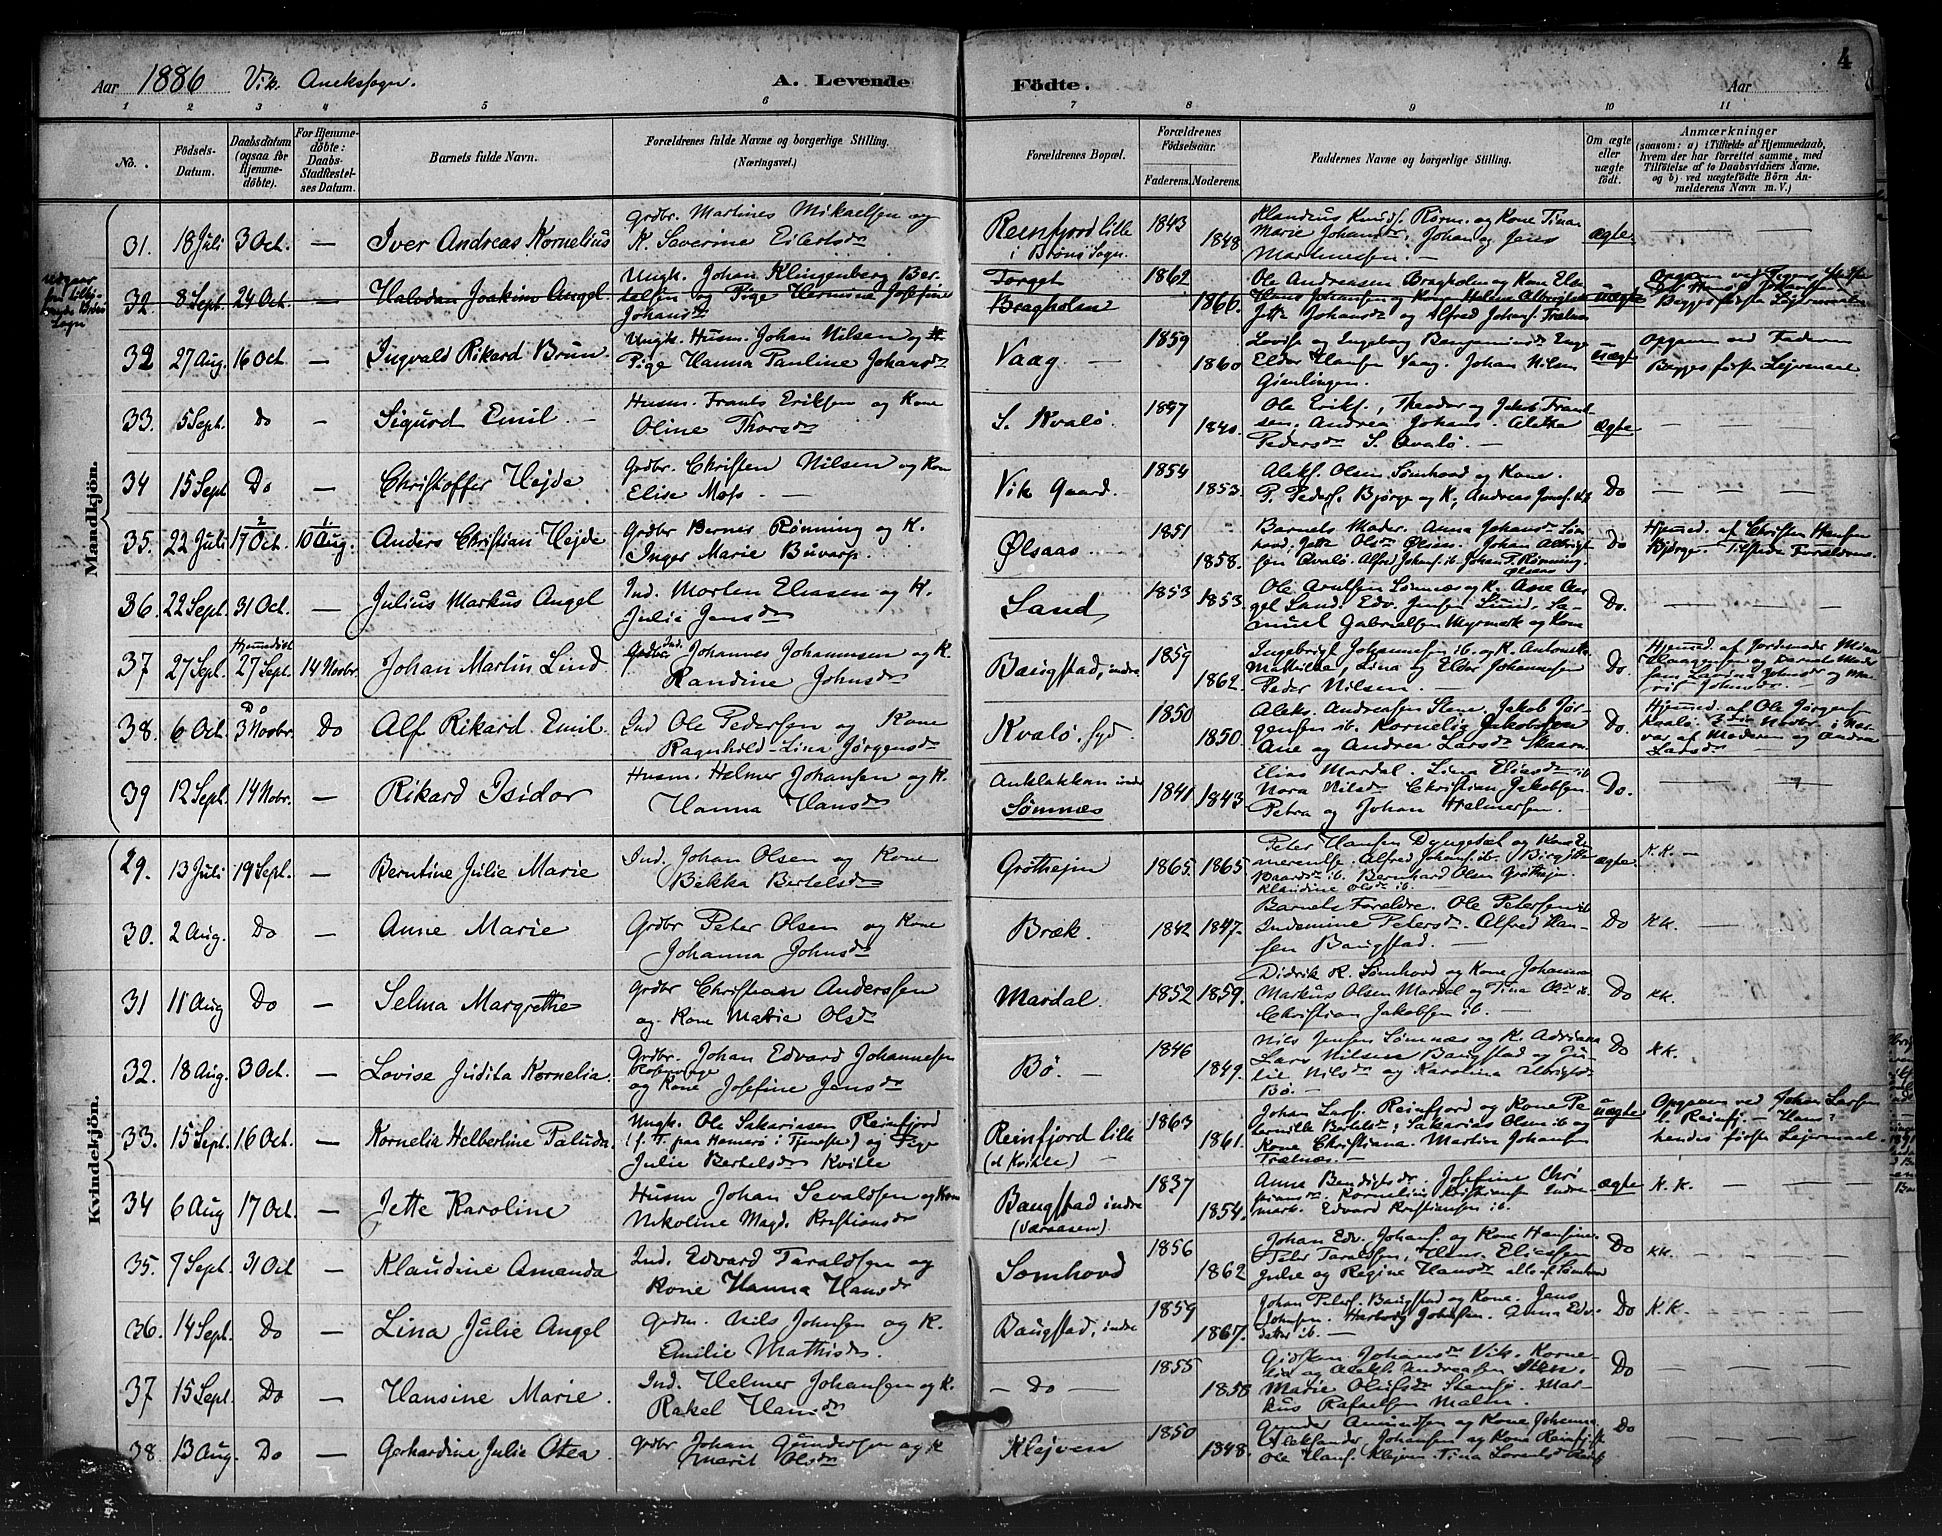 4
Aar 1886 Vik Anekssogn. A. Levende Födte. Aar
1 2 3 4 5 6 7 8 9 10 11
No.
Födsels-Datum.
Daabsdatum (ogsaa for Hjemmedöbte).
For Hjemmedöbte: Daabs-Stadfæstelses Datum.
Barnets fulde Navn.
Forældrenes fulde Navne og borgerlige Stilling. (Næringsvei.)
Forældrenes Bopæl.
Forældrenes Födselsaar.
Faderens. Moderens.
Faddernes Navne og borgerlige Stilling.
Om ægte eller uægte födt.
Anmærkninger
(saasom: a) i Tilfælde af Hjemmedaab, hvem der har forrettet samme, med Tilföielse af to Daabsvidners Navne, og b) ved uægtefödte Börn Anmelderens Navn m. V.)
Mandkjön.
31. 18 Juli 3 Oct. — Iver Andreas Kornelius
Grdbr. Martines Mikaelsen og
K. Severine Eilertsdr
Reinfjord lille
i Brönö Sogn.
1843 1848
Klaudius Knuds. Rörm. og Kone Tina
Marie Johansdr, Johan og Jens
Martinussen.
ægte — — —
32. 8 Sept. 24 Oct. — Halvdan Joakim Angel
Ungk. Johan Klingenberg Ber-
telsen og Pige Hermine Josefine
Johansdr
Torget
Bragholm
1862 1866.
Ole Andreasen Bragholm og Kone Elen
Hans Johansen og Kone Helene Albrigtsdr
Jetta Johansdr og Alfred Johans. Trælnes
uægte
Begges første Lejermaal
32 27 Aug. 16 Oct. — Ingvald Rikard Brun
Ungk. Husm. Johan Nilsen og
Pige Hanna Pauline Johansdr
Vaag —
1859 1860
Lovise og Ingeborg Benjaminsdr
Elder Hansen Vaag. Johan Nilsen
uægte
Opgaven ved Faderen
Begges første Lejermaal
33. 5 Sept. Do — Sigurd Emil —
Husm. Frants Eriksen og Kone
Oline Thorsdr
S. Kvalö.
1847 1840.
Ole Eriks., Theodor og Jakob Frant-
sen, Andrea Johans.
Pedersdr S. Qvalö. —
ægte — — —
34 15 Sept Do — Christoffer Hejde
Grdbr. Christen Nilsen og Kon
Elise Moss. —
Vik Gaard.
1854 1853.
Aleks. Olsen Sömhovd og Kone.
P. Peders. Bjørge og K, Andreas
Do — — —
35. 22 Juli 17 Oct. 10 Aug. Anders Christian Hejde
Grdbr Bernes Rønning og K.
Inger Marie Buvarp.
Ølsaas. —
1851 1858.
Barnets Moder. Anna Johansdr Söm-
hovd, Jetta Olsdr Ølsaas. Johan Albrigt-
sen Qvalö. Alfred Johans. ib. Johan P. Rønning
Ølsaas
Do
Hjemmed. af Christen Hansen
Bjørge — Tilstede Forældrene.
36. 22 Sept. 31 Oct. — Julius Markus Angel
Ind. Morten Eliasen og K.
Julie Jensdr
Sand
1853 1853.
Ole Arntsen Sømnæs og K. Ane An-
gel Sand. Edv. Jensen Sund. Sa-
muel Gabrielsen Myrmark og Kone
Do. — — —
37 27 Sept. Hjemmedöbt 27 Sept. 14 Novbr. Johan Martin Lind
Ind. Johannes Johannesen og K.
Randine Johnsdr
Baugstad, indre
1859 1862.
Ingebrigt Johannesen ib. og K. Antonette
Mathilde, Lina og Elder Johannesen
Peder Nilsen. —
Do.
Hjemmed. af Jordemoder
38. 6 Oct. Do 3 Novbr. Do Alf Rikard Emil.
Ind Ole Pedersen og Kone
Ragnhild Lina Jørgensdr
Kvalö, syd
1850 1850.
Aleks. Andreasen Stene. Jakob Jør-
gensen ib. Kornelia Jakobsen
Ane og Andrea Larsdr Skaarn
Do.
Hjemmed. af Ole Jørgensen
Kvalö. 3die Novbr. i Nær-
vær af Moderen og Andrea
Larsdr
39 12 Sept. 14 Nobr. — Rikard Isidor
Husm. Helmer Johansen og K.
Hanna Hansdr
Anklakken indre
Sömnæs
1841 1843
Elias Mardal. Lina Eliasdr ib
Nora Nilsdr Christian Jakobsen
Petra og Johan Helmersen. —
Do. — —
Kvindekjön.
29. 13 Juli 19 Sept. — Berntine Julie Marie
Ind. Johan Olsen og Kone
Bekka Bertelsdr
Grøthejm
1865. 1865
Peter Hansen Dyngedal og Kone E-
merentse. Alfred Johans. ib. Birgitte
Baardsdr ib. Bernhard Olsen Grøthejm
Klaudine Olsdr ib.
ægte. K.K. —
30. 2 Aug. Do — Anne Marie
Grdbr Peter Olsen og Kone
Johanna Johnsdr
Bræk.
1842 1847.
Barnets Forældre. Ole Petersen ib
Indemine Petersdr. Alfred Han-
sen Baugstad. —
Do KK. — —
31 11 Aug Do — Selma Margrethe
Grdbr Christian Anderssen
og Kone Marie Olsdr
Mardal.
1852 1859.
Didrik R. Sömhovd og Kone Johanna
Markus Olsen Mardal og Tina Olsdr ib.
Christian Jakobsen ib. —
Do KK. — —
32. 18 Aug. 3 Oct. — Lovise Judita Kornelia.
Grdbr. Johan Edvard Johannesen
og Kone Josefine Jensdr
Bö. —
1846 1849.
Nils Jensen Sömnæs og K. Adriana
Lars Nilsen Baugstad og Ju-
lie Nilsdr og Karolina Albrigtsdr
Bö. —
Do KK. — —
33. 15 Sept. 16 Oct. — Kornelia Helbertine Paluda.
Ungk. Ole Sakariassen Reinfjord
(f. T. paa Hamerö i Tjeneste) og Pige
Julie Bertelsdr Kvitle
Reinfjord lille
(d Kvitle)
1863 1861.
Johan Lars. Reinfjord og Kone Pe-
ternille Bertelsdr, Sakarias Olsen ib og
Kone Christiana. Martin Johansen
Trælnæs. —
uægte
Opgaven ved Johan Larsen
l. Reinfj. — Hans?
hendes første Lejermaal —
34 6 Aug 17 Oct. — Jette Karoline
Husm Johan Sevaldsen og Kone
Nikoline Magd. Kristiansdr
Baugstad indre
(Væraasen)
1837 1854.
Anna Bendigtsdr. Josefine Chri-
stiansdr. Kornelius Kristiansen Indre-
mark. Edvard Kristiansen ib.
ægte K.K. — — —
35. 7 Sept. 31 Oct — Klaudine Amanda
Ind. Edvard Taraldsen og
Kone Hanna Hansdr
Somhovd
1856 1862
Johan Edv. Johans. og Kone Hansine.
Peter Taraldsen, Hans Eliassen
Julie og Regine Hansdr alle af Sömhovd
Do KK. — —
36. 14 Sept. Do — Lina Julie Angel
Grdm. Nils Johnsen og K.
Emilie Mathisdr.
Baugstad, indre
1859 1867.
Johan Peters. Baugstad og Kone. Jens
Johnsen. Harborg Johnsen. Anna Edv.
datter ib. —
Do K.K. — —
37 15 Sept. Do — Hansine Marie
Ind. Helmer Johansen og K.
Rakel Hansdr
— Do —
1855 1858
Gidsken Johansdr Vik. Korne-
lia og Aleks. Andreasen Sten.
Marie Olufsdr Stensø. Mar-
kus Rafaelsen Malm.
Do — — —
38. 13 Aug. Do — Gerhardine Julie Otea
Grdbr Johan Gundersen og K
Marit Olsdr
Klejven
1850 1848.
Gunder Amundsen og Kone Johanna.
Aleksander Johansen og Kone Reinfjord
Ole Hans. Klejven. Tina Lorentsdr
Do — — —